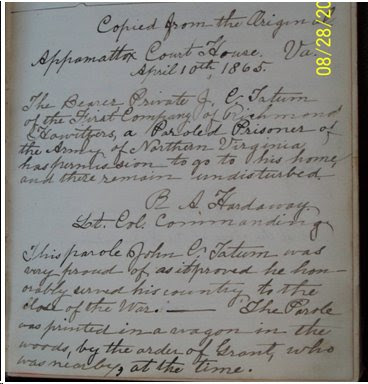 Copied from the Original
Appamattox Court House. Va.
April 10th, 1865.
The Bearer Private J. C. Tatum
of the First Company of Richmond
Howitzers, a Paroled Prisoner of
the Army of Northern Virginia
has permission to go to his home
and there remain undisturbed
R A Hardaway
Lt. Col. Commanding
This parole John C. Tatum was
very proud of as it proved he hon-
orably served his country to the
close of the War. — The Parole
was printed in a wagon in the
woods, by the order of Grant, who
was nearby, at the time.
08/28/20